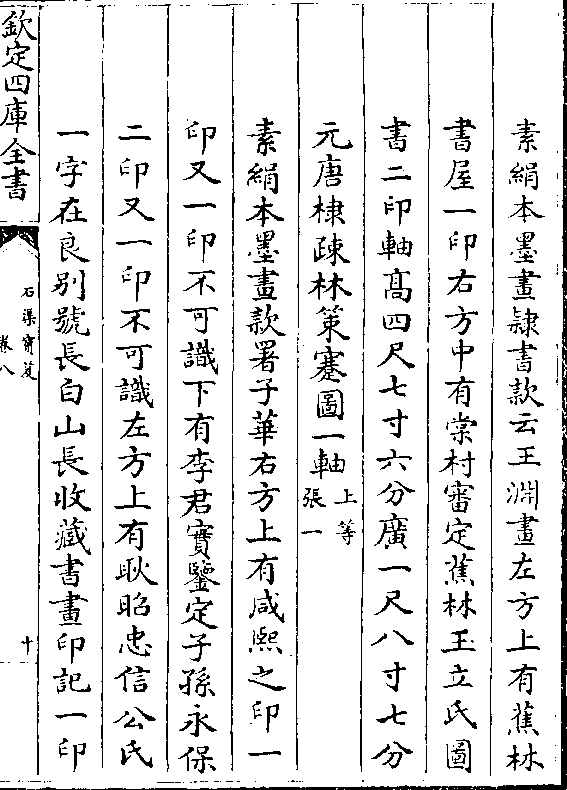 素絹本墨畫隸書款云王淵畫左方上有蕉林
書屋一印右方中有棠村審定蕉林玉立氏圖
書二印軸髙四尺七寸六分廣一尺八寸七分
元唐棣疎林策蹇圖一軸上等張一
素絹本墨畫款署子華右方上有咸熙之印一
印又一印不可識下有李君寳鑒定子孫永保
二印又一印不可識左方上有耿昭忠信公氏
一字在良别號長白山長收藏書畫印記一印
欽定四庫全書
石渠寳笈
卷八
十